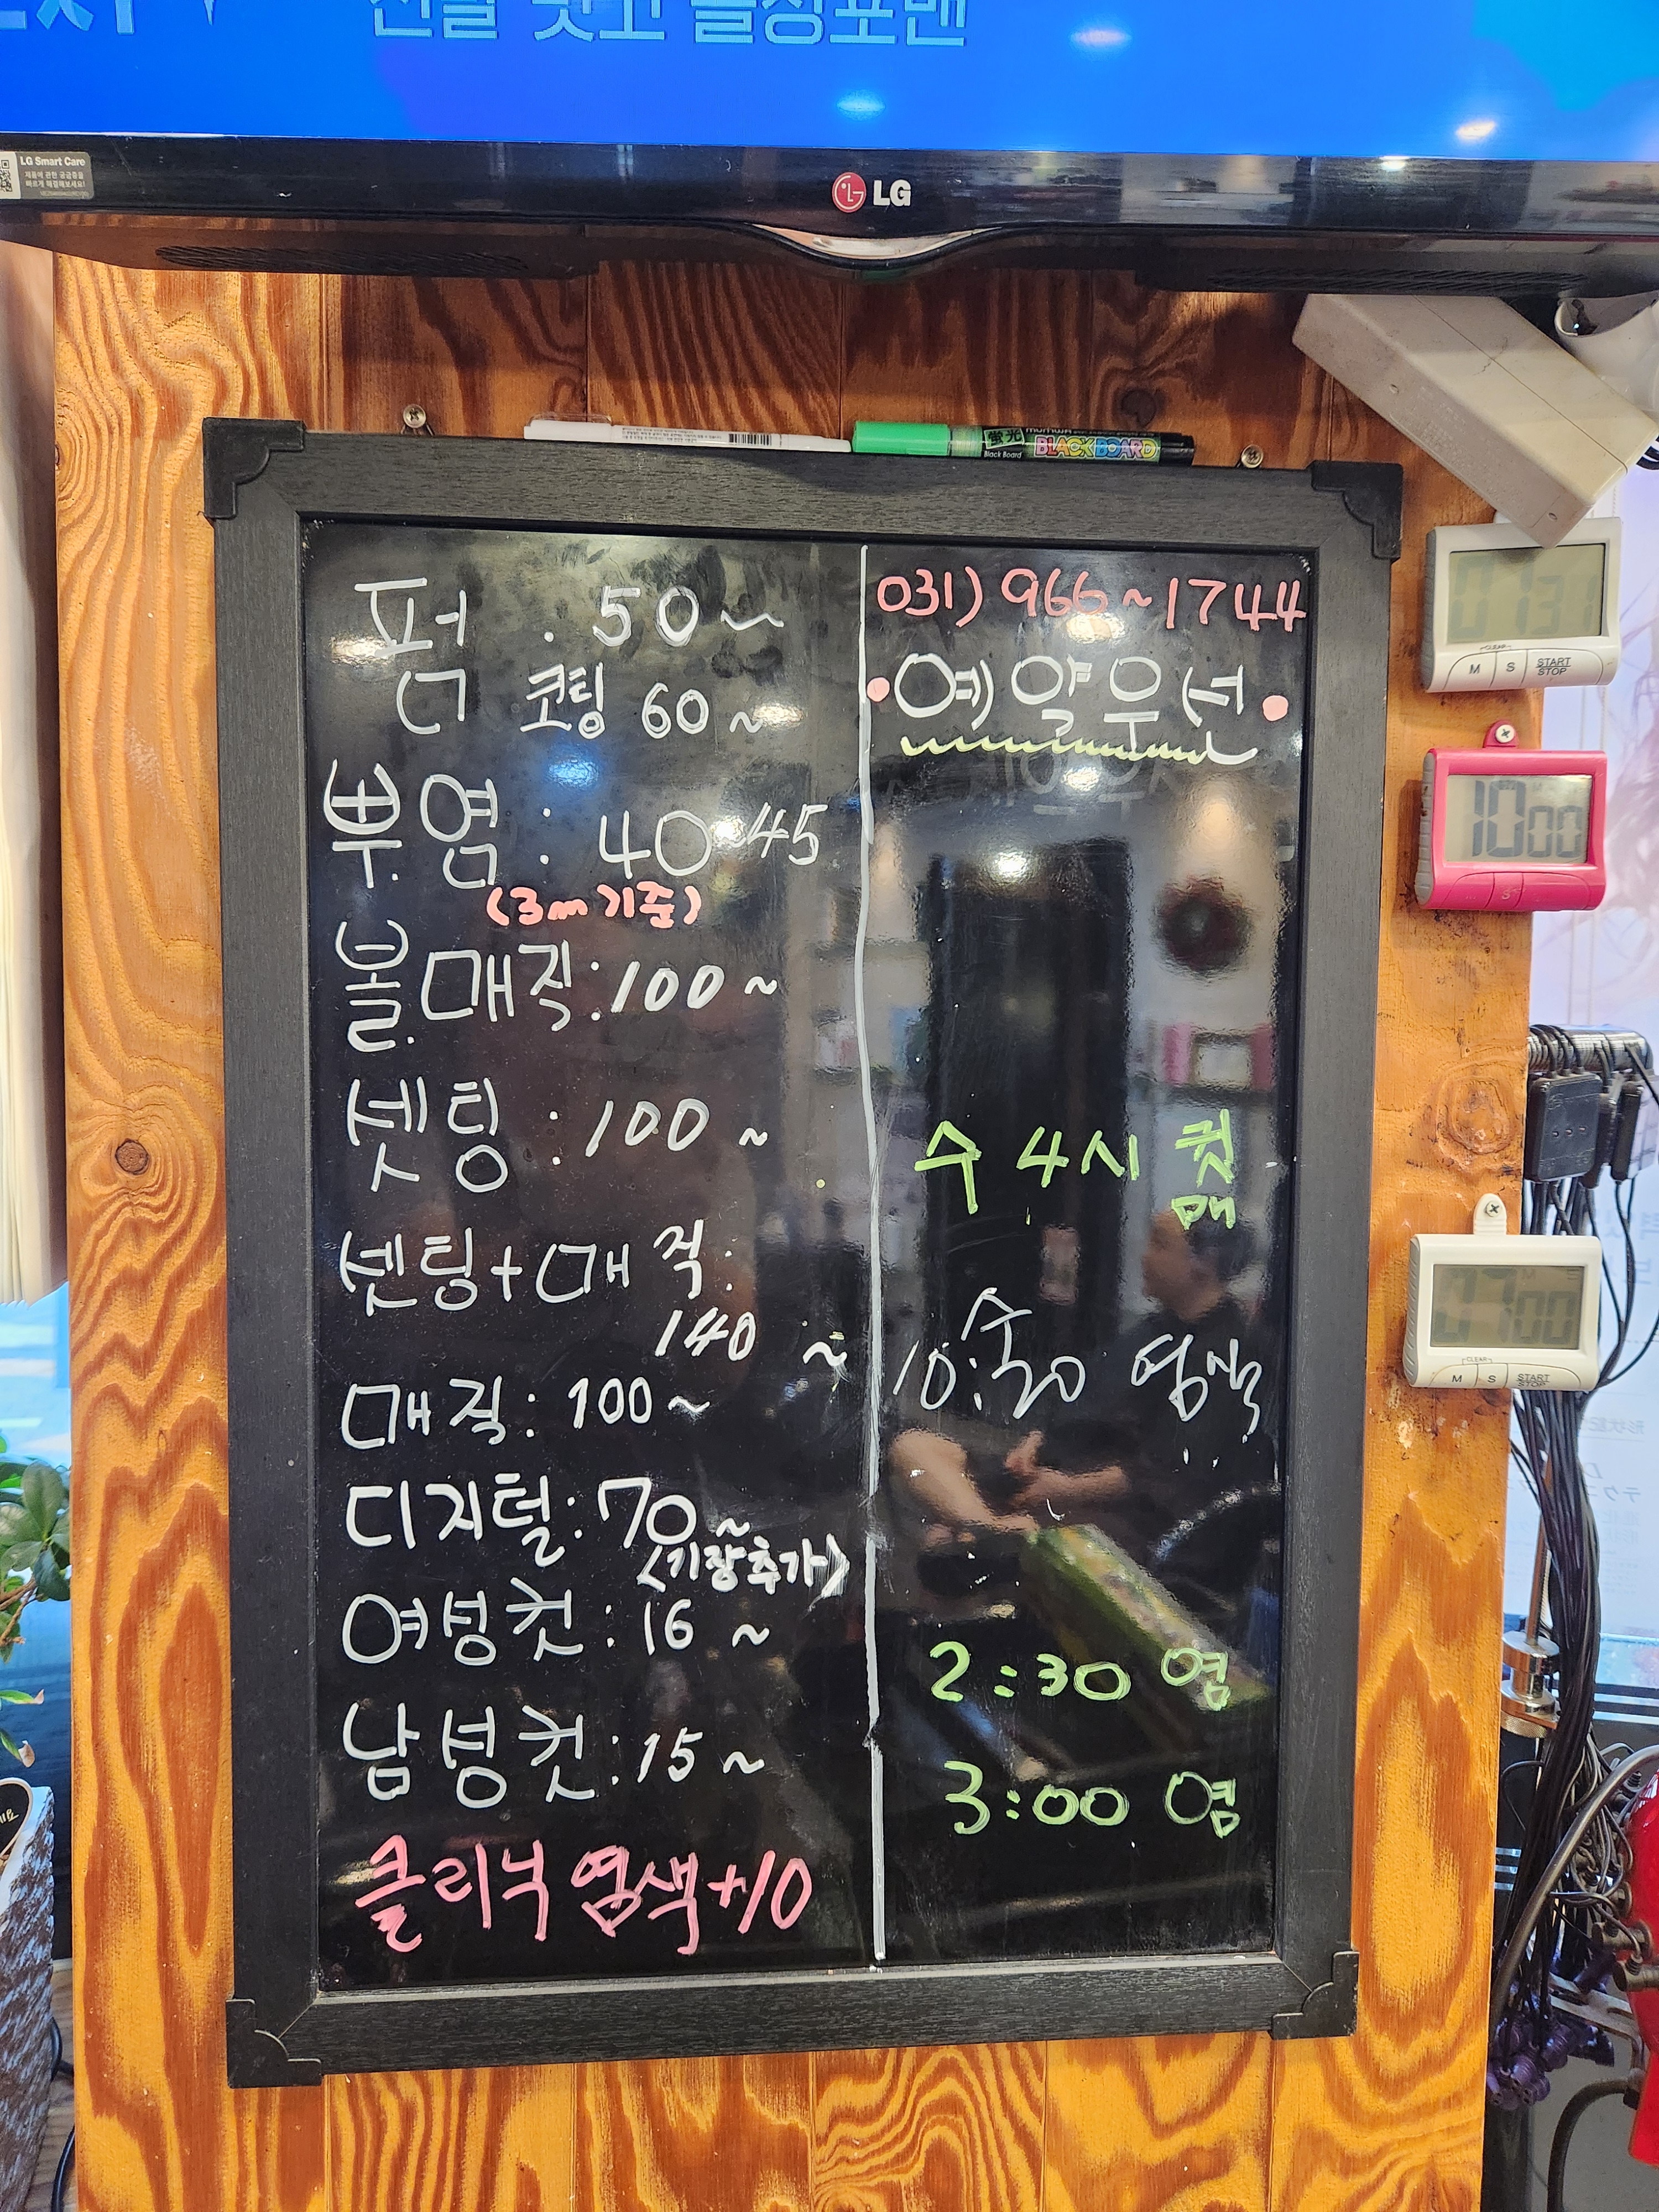 LG Smart Care
LG
BLACK BOARD
Black Board
펌 : 50~
코팅 60~
뿌염 : 40~45
(3m기준)
볼.매직:100~
셋팅 : 100~
셋팅+매직:
140~
매직: 100~
디지털:70~
(기장추가)
여성컷:16~
남성컷:15~
클리닉 염색+10
031) 966~1744
•예약우선•
수 4시 컷
매
수
10:20 염색
2:30 염
3:00 염
M S START STOP
10 00
CLEAR
M S START STOP